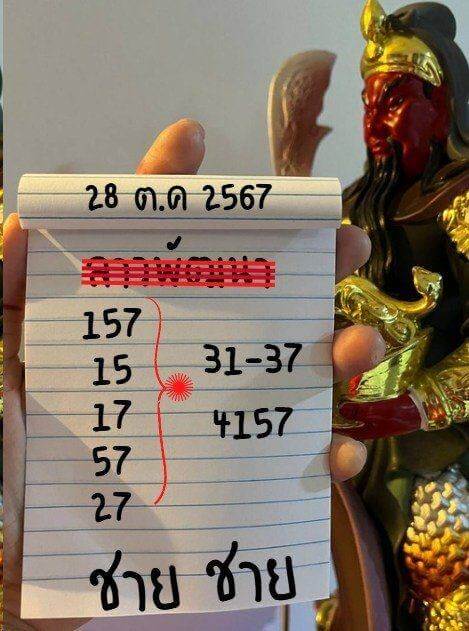 28 ต.ค 2567
ลาวพัฒนา
157
15
17
57
27
31-37
4157
ชาย ชาย